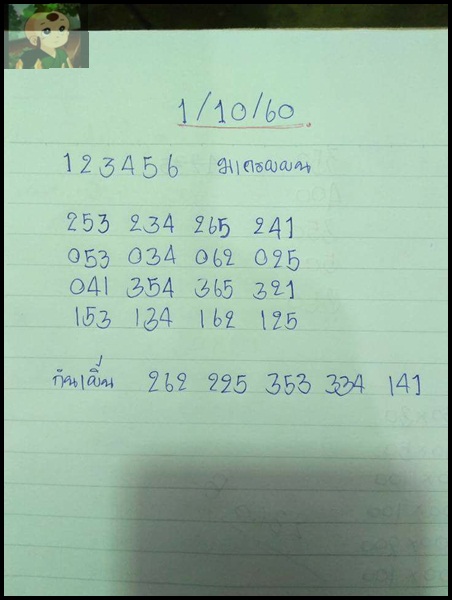 1/10/60
123456
253 234 265 241
053 034 062 025
041 354 365 321
153 134 162 125
กันเบิ้ล 262 225 353 334 141